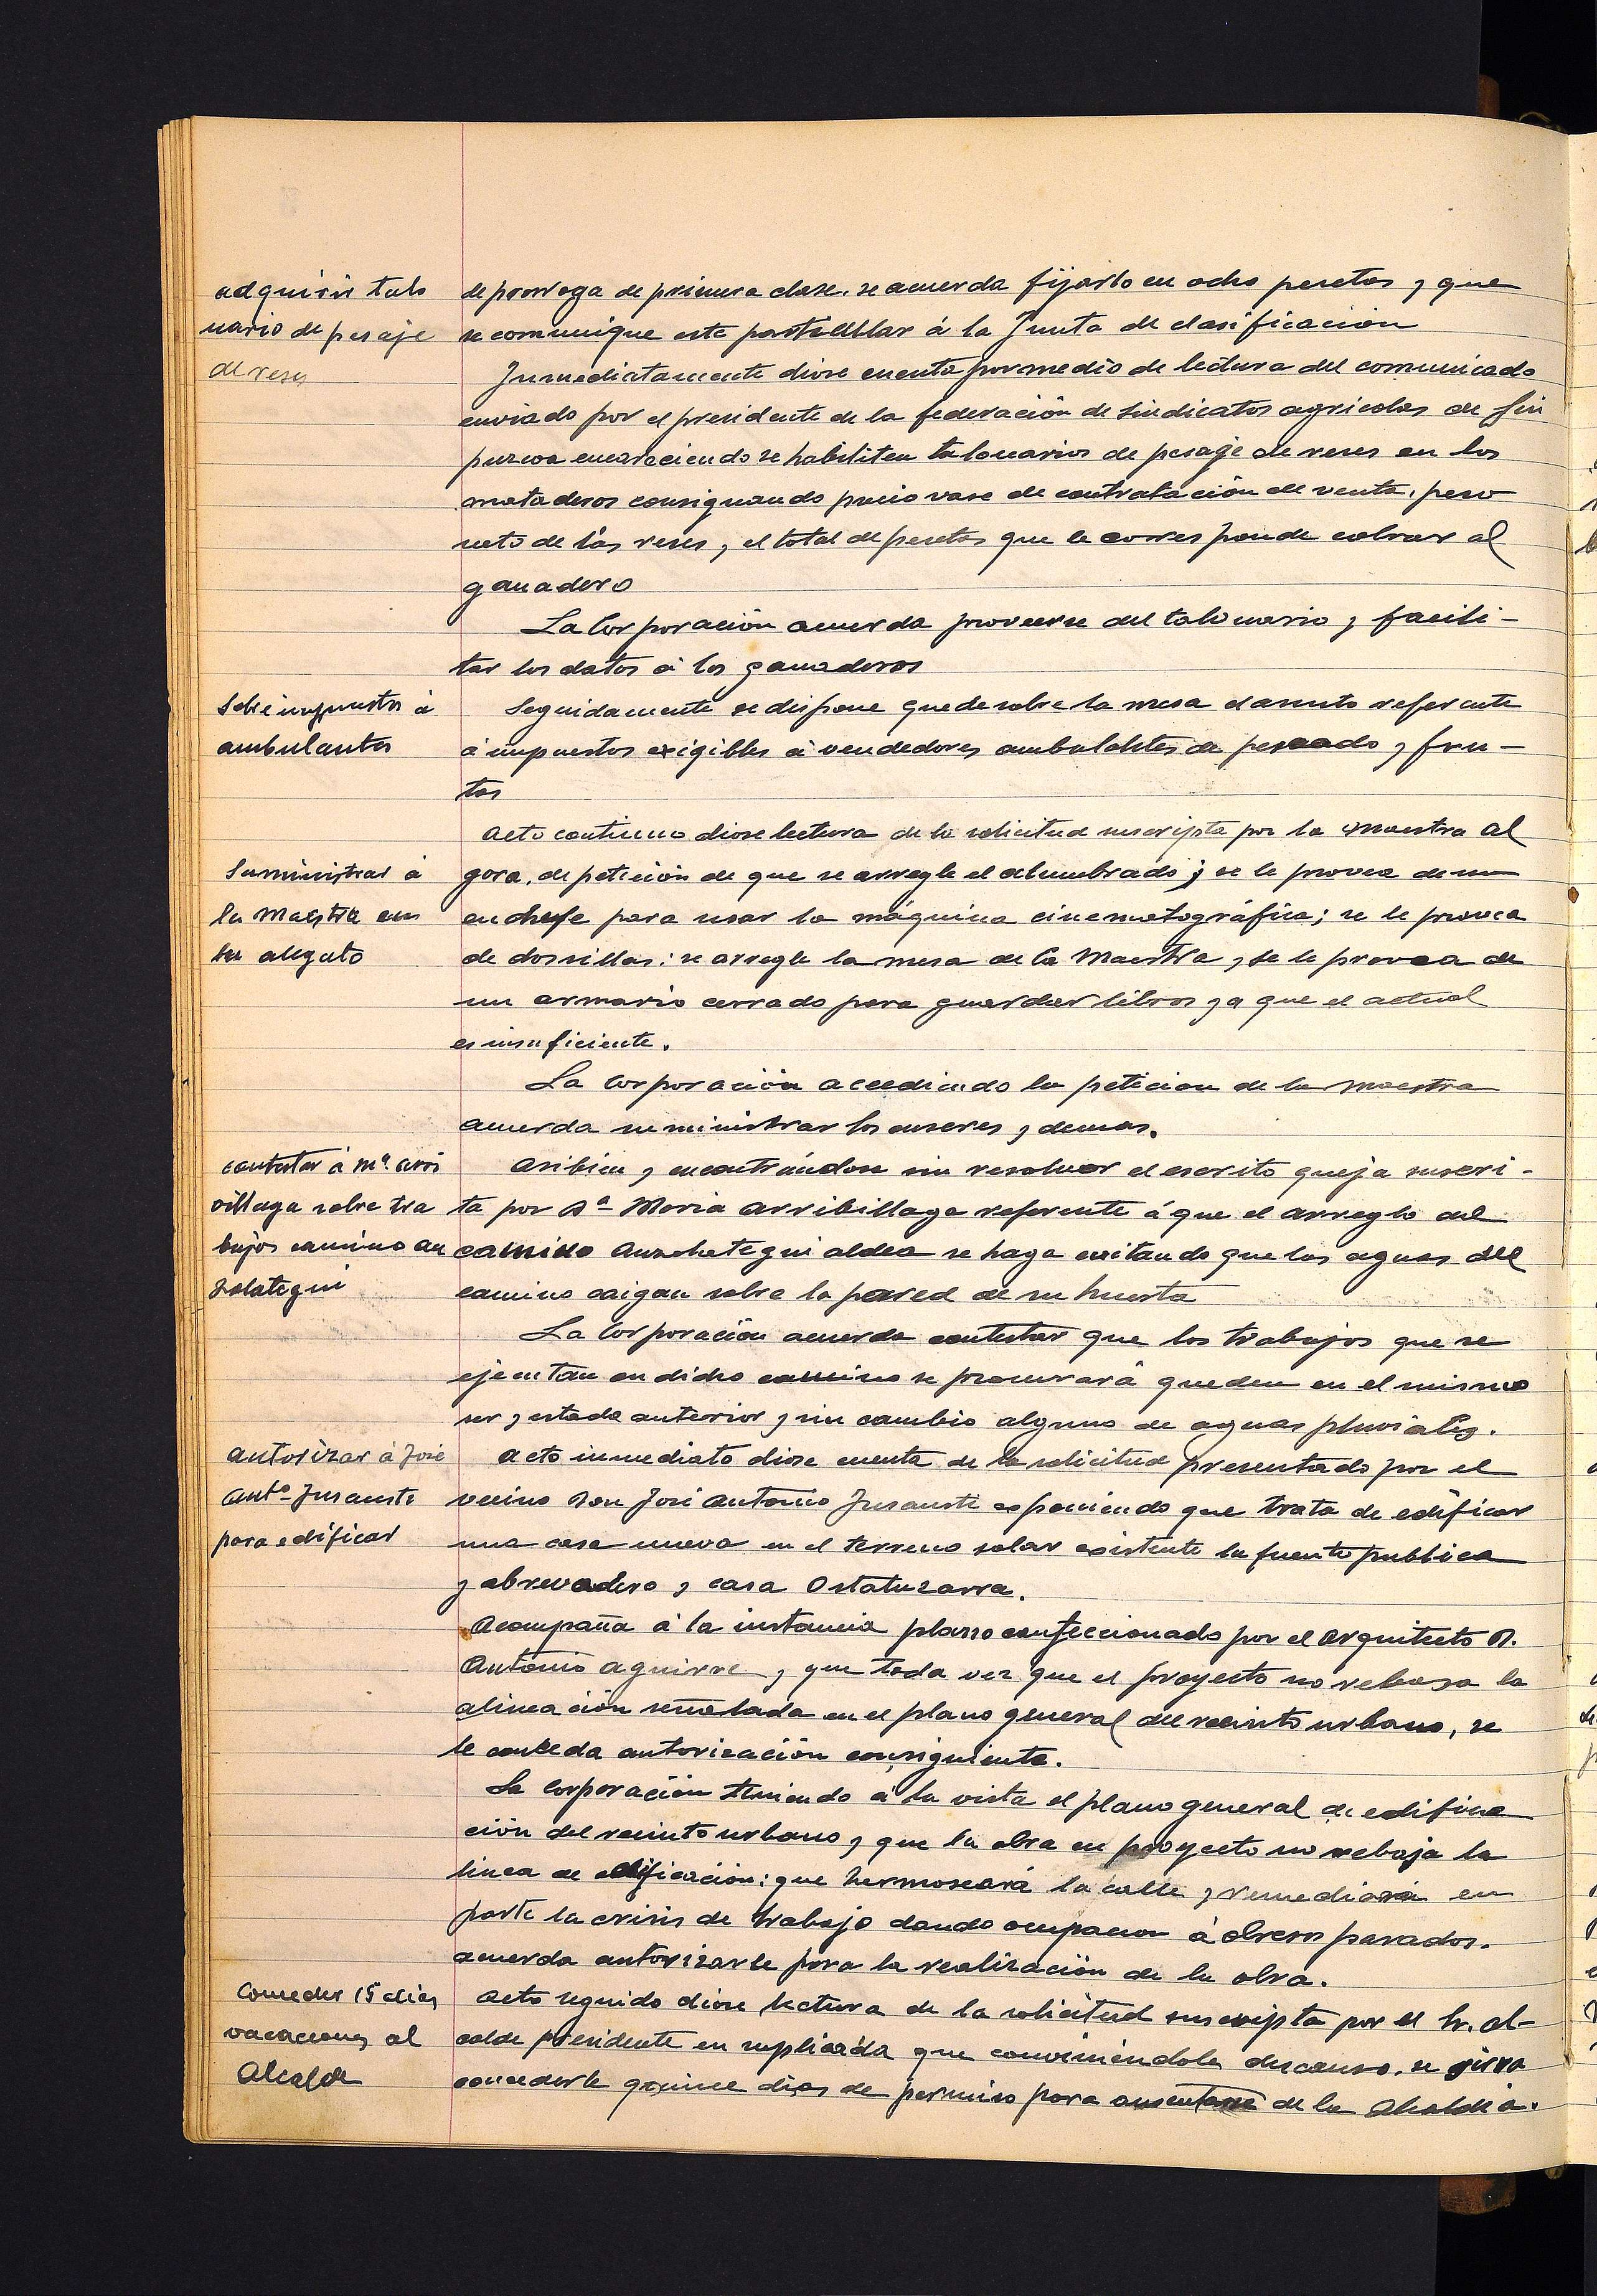 adquirir talo
nario de pesaje
de reses
de prorroga de primera clase. se acuerda fijarlo en ocho pesetas y que
se comunique este particular á la Junta de clasificación
Inmediatamente diose cuenta por medio de lectura del comunicado
enviado por el presidente de la federación de sindicatos agricolas de Gui
puzcoa encareciendo se habiliten talonarios de pesaje de reses en los
mataderos consignando precio vase de contratación de venta, peso
neto de las reses, y el total de pesetas que le corresponde cobrar al
ganadero
La Corporación acuerda proveerse del talonario y facili-
tar los datos á los ganaderos
Sobre impuestos á
ambulantes
Seguidamente se dispone quede sobre la mesa el asunto referente
á impuestos exigibles á vendedores ambulantes de pescado y fru-
tas
Suministrar á
la Maestra en
su alegato
Acto continuo diose lectura de la solicitud suscripta por la Maestra Al
gora, de petición de que se arregle el alumbrado; se le provea de un
enchufe para usar la máquina cinematográfica; se le provea
de dos sillas: se arregle la mesa de la Maestra y se le provea de
un armario cerrado para guardar libros ya que el actual
es insuficiente.
La Corporación accediendo la peticion de la Maestra
acuerda suministrar los enseres y demas.
contestar á Mª Arri
villaga sobre tra
bajos camino An
zolategui
Asibien y encontrándose sin resolver el escrito queja suscri-
ta por Dª Maria Arribillaga referente á que el arreglo del
camino Anzchategui aldea se haga evitando que las aguas del
camino caigan sobre la pared de su huerta
La Corporación acuerda contestar que los trabajos que se
ejecutan en dicho camino se procurará queden en el mismo
ser y estado anterior y sin cambio alguno de aguas pluviales.
Autorizar á José
Antº Insausti
para edificar
Acto inmediato diose cuenta de la solicitud presentado por el
vecino Don José Antonio Insausti exponiendo que trata de edificar
una casa nueva en el terreno solar existente la fuente publica
y abrevadero y casa Ostatuzarra.
Acompaña á la instancia plano confeccionado por el Arquitecto D.
Antonio Aguirre, y que toda vez que el proyecto no rebasa la
alineación señalada en el plano general del recinto urbano, se
le conceda autorización consiguiente.
La Corporación teniendo á la vista el plano general de edifica
ción del recinto urbano y que la obra en proyecto no rebaja la
linea de edificación: que hermoseará la calle y remediará en
parte la crisis de trabajo dando ocupacion á obreros parados.
acuerda autorizarle para la realización de la obra.
Conceder 15 dias
vacaciones al
Alcalde
Acto seguido diose lectura de la solicitud suscripta por el Sr. Al-
calde presidente en suplicada que conviniéndole descanso, se sirva
concederle quince dias de permiso para ausentarse de la Alcaldia.